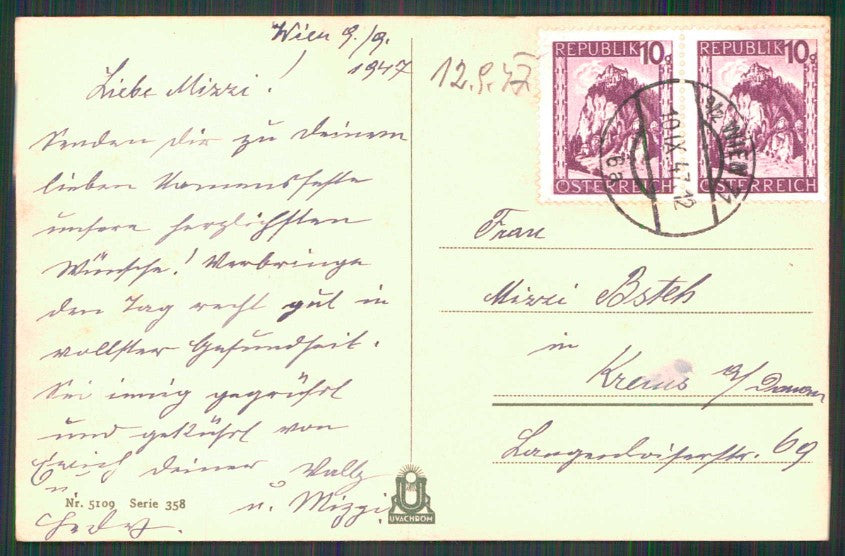 Wien 9./9.
1947
Liebe Mizzi!
Senden dir zu deinem
lieben Namensfeste
unsere herzlichsten
Wünsche! Verbringe
den Tag recht gut in
vollster Gesundheit.
Sei innig gegrüßt
und geküßt von
Erich deiner Wally
u. u. Mizzi
Nr. 5109 Serie 358
UVACHROM
12.9.47
REPUBLIK 10g
ÖSTERREICH
REPUBLIK 10g
ÖSTERREICH
WIEN
10.IX.47.12
6a
Frau
Mizzi Bsteh
in
Krems a/Donau
Langenloiserstr. 69